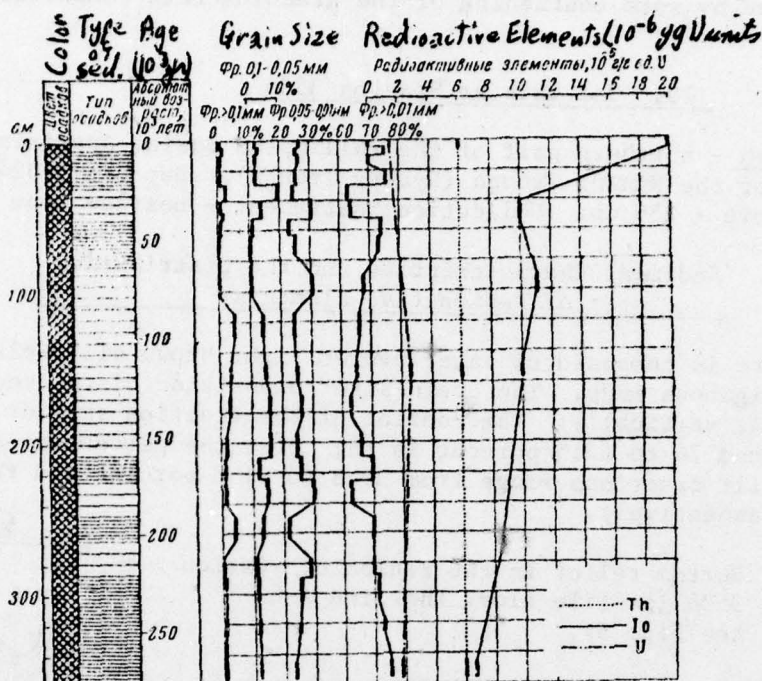 Color
Type of sed.
Age (10³ yr)
Grain Size
Radioactive Elements (10⁻⁶ y g U units
Цвет осадков
Тип осадков
Абсолютный возраст, 10³ лет
Фр. 0,1-0,05 мм
0 10%
Фр.>0,1мм Фр.0,05-0,01мм Фр.>0,01мм
0 10% 20 30% 60 70 80%
Радиоактивные элементы, 10⁻⁵ г/г ед. U
0 2 4 6 8 10 12 14 16 18 20
см
0
0
50
100
100
150
200
200
300
250
Th
Io
U